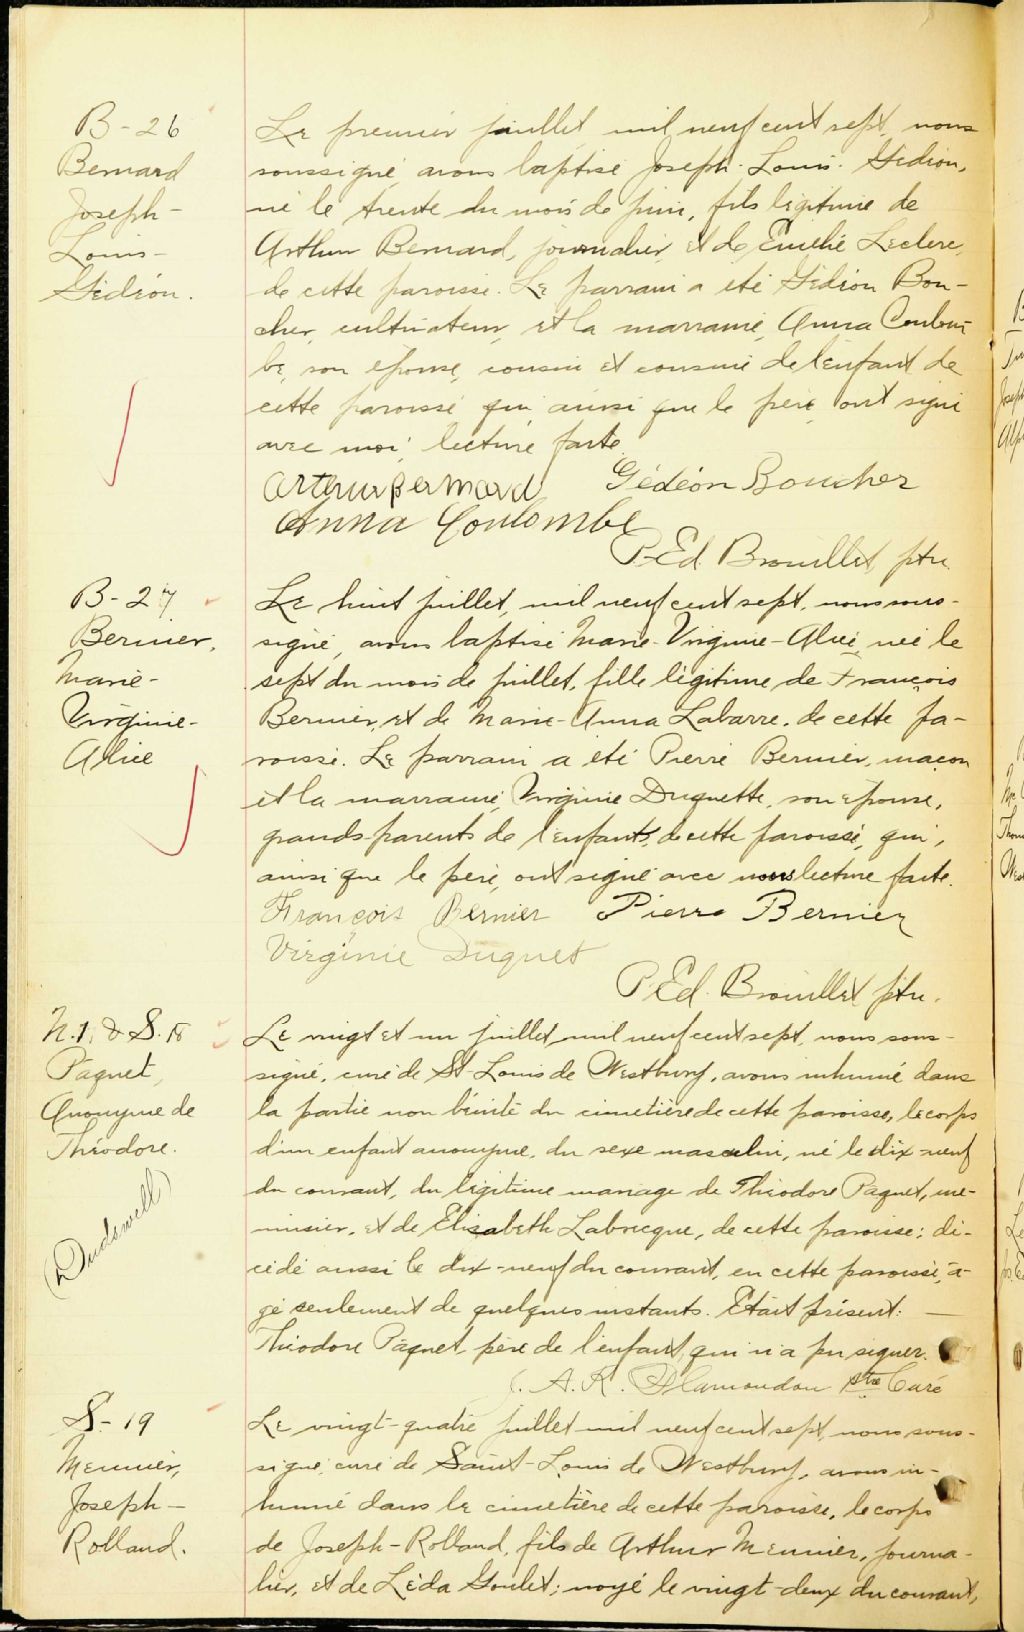 B-26
Bernard
Joseph-
Louis-
Gédéon.
Le premier juillet mil neuf cent sept, nous
soussigné avons baptisé Joseph-Louis-Gédéon,
né le trente du mois de juin, fils légitime de
Arthur Bernard, journalier, et de Emélie Leclerc,
de cette paroisse. Le parrain a été Gédéon Bou-
cher, cultivateur, et la marraine, Anna Coulom-
be, son épouse, cousin et cousine de l'enfant de
cette paroisse qui ainsi que le père, ont signé
avec moi, lecture faite.
Arthur Bernard Gédéon Boucher
Anna Coulombe
P-Ed. Brouillet, ptre.
B-27
Bernier,
Marie-
Virginie-
Alice
Le huit juillet, mil neuf cent sept, nous sous-
signé, avons baptisé Marie-Virginie-Alice, née le
sept du mois de juillet, fille légitime de François
Bernier, et de Marie-Anna Labarre, de cette pa-
roisse. Le parrain a été Pierre Bernier, maçon
et la marraine, Virginie Duquette, son épouse,
grands-parents de l'enfant, de cette paroisse, qui,
ainsi que le père, ont signé avec nous lecture faite.
François Bernier Pierre Bernier
Virginie Duquet
P.Ed. Brouillet, ptre.
N.1, & S. 18
Paquet,
Anonyme de
Théodore.
(Dudswell)
Le vingt et un juillet, mil neuf cent sept, nous sous-
signé, curé de St-Louis de Westbury, avons inhumé dans
la partie non bénite du cimetière de cette paroisse, le corps
d'un enfant anonyme, du sexe masculin, né le dix-neuf
du courant, du légitime mariage de Théodore Paquet, me-
nuisier, et de Elisabeth Labrecque, de cette paroisse; dé-
cédé aussi le dix-neuf du courant, en cette paroisse, â-
gé seulement de quelques instants. Etait présent:
Théodore Paquet, père de l'enfant, qui n'a pu signer.
J. A. R. Plamondon ptre Curé
S-19
Meunier,
Joseph-
Rolland.
Le vingt-quatre juillet mil neuf cent sept, nous sous-
signé, curé de Saint-Louis de Westbury, avons in-
humé dans le cimetière de cette paroisse, le corps
de Joseph-Rolland, fils de Arthur Meunier, journa-
lier, et de Léda Goulet; noyé le vingt-deux du courant,